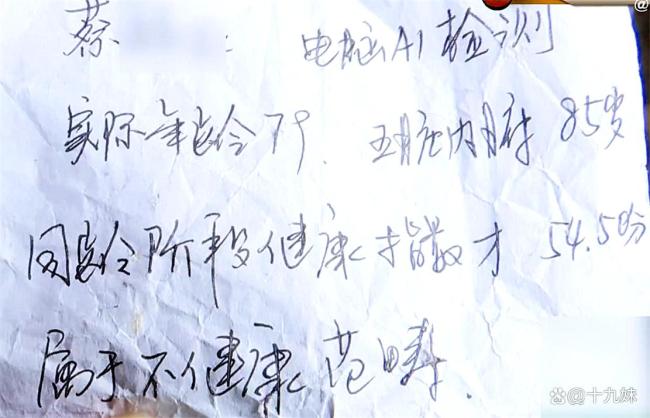 蔡 : 电脑AI检测
实际年龄79. 五脏内府85岁
同龄阶段健康指数才54.5分
属于不健康范畴.
@十九妹
@